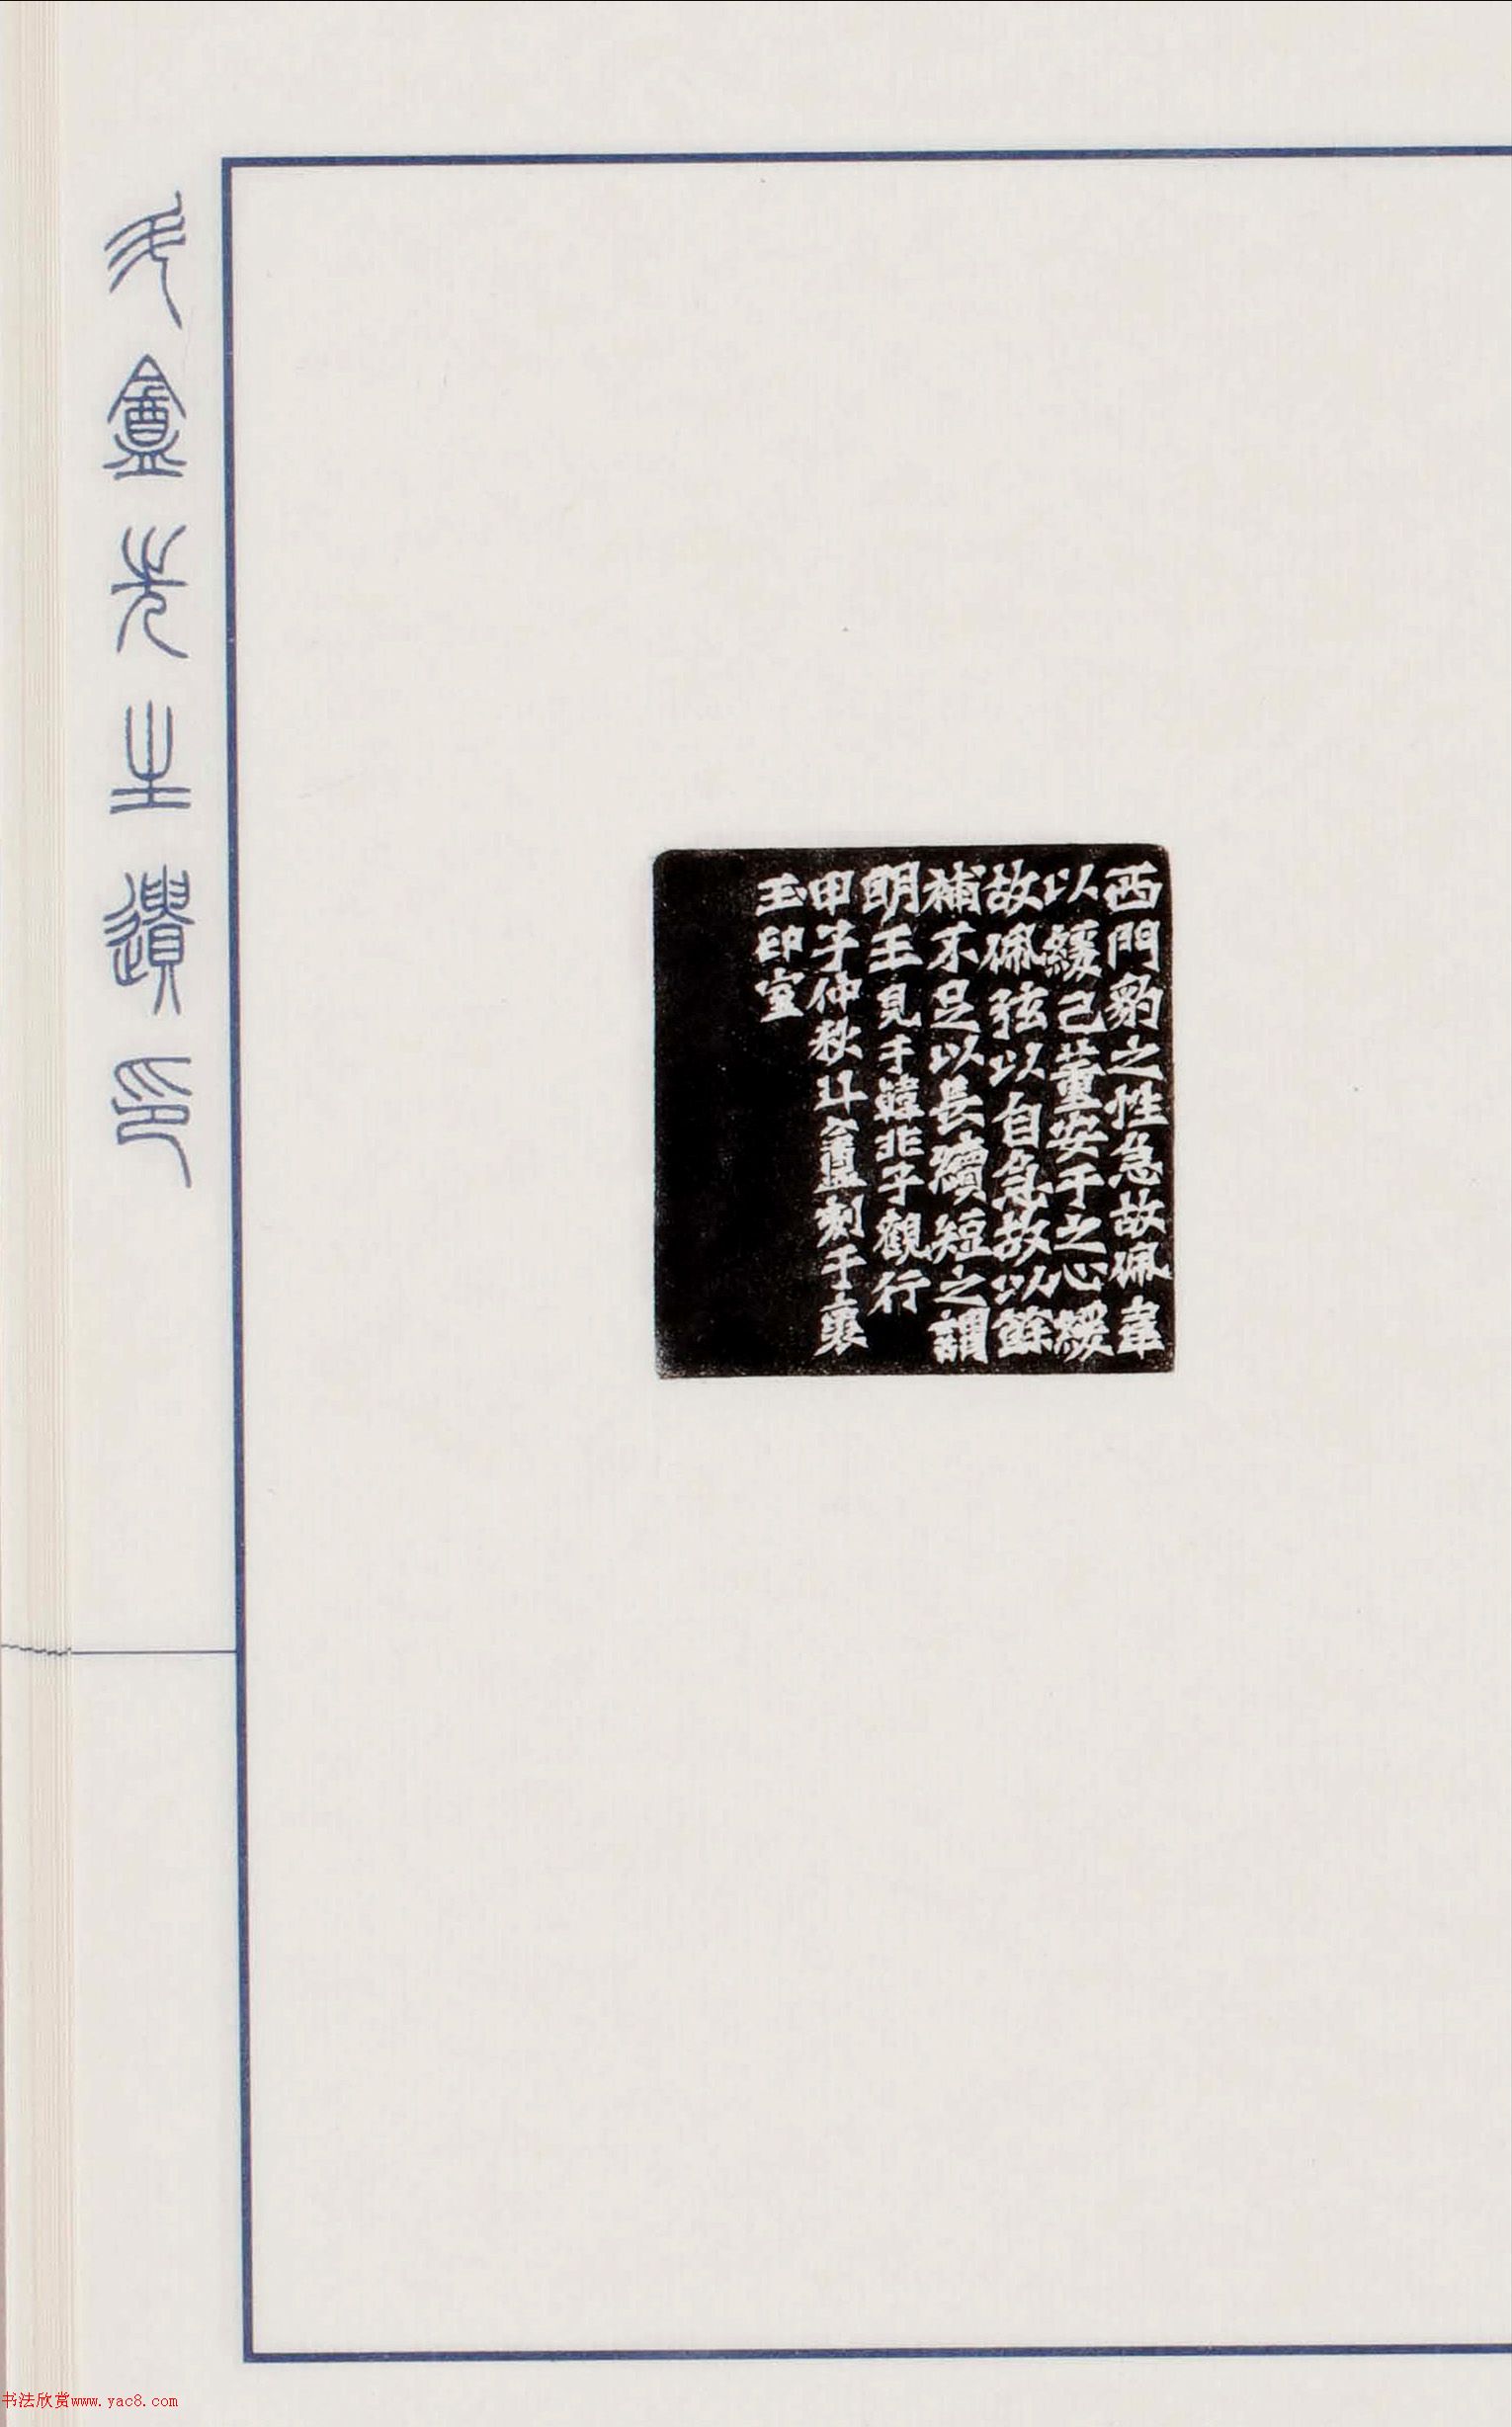 斗盦先生遺印
西門豹之性急故佩韋
以緩己董安于之心緩
故佩弦以自急故以餘
補不足以長續短之謂
明王見于韓非子觀行
甲子仲秋斗盦刻于褱
玉印室
书法欣赏www.yac8.com